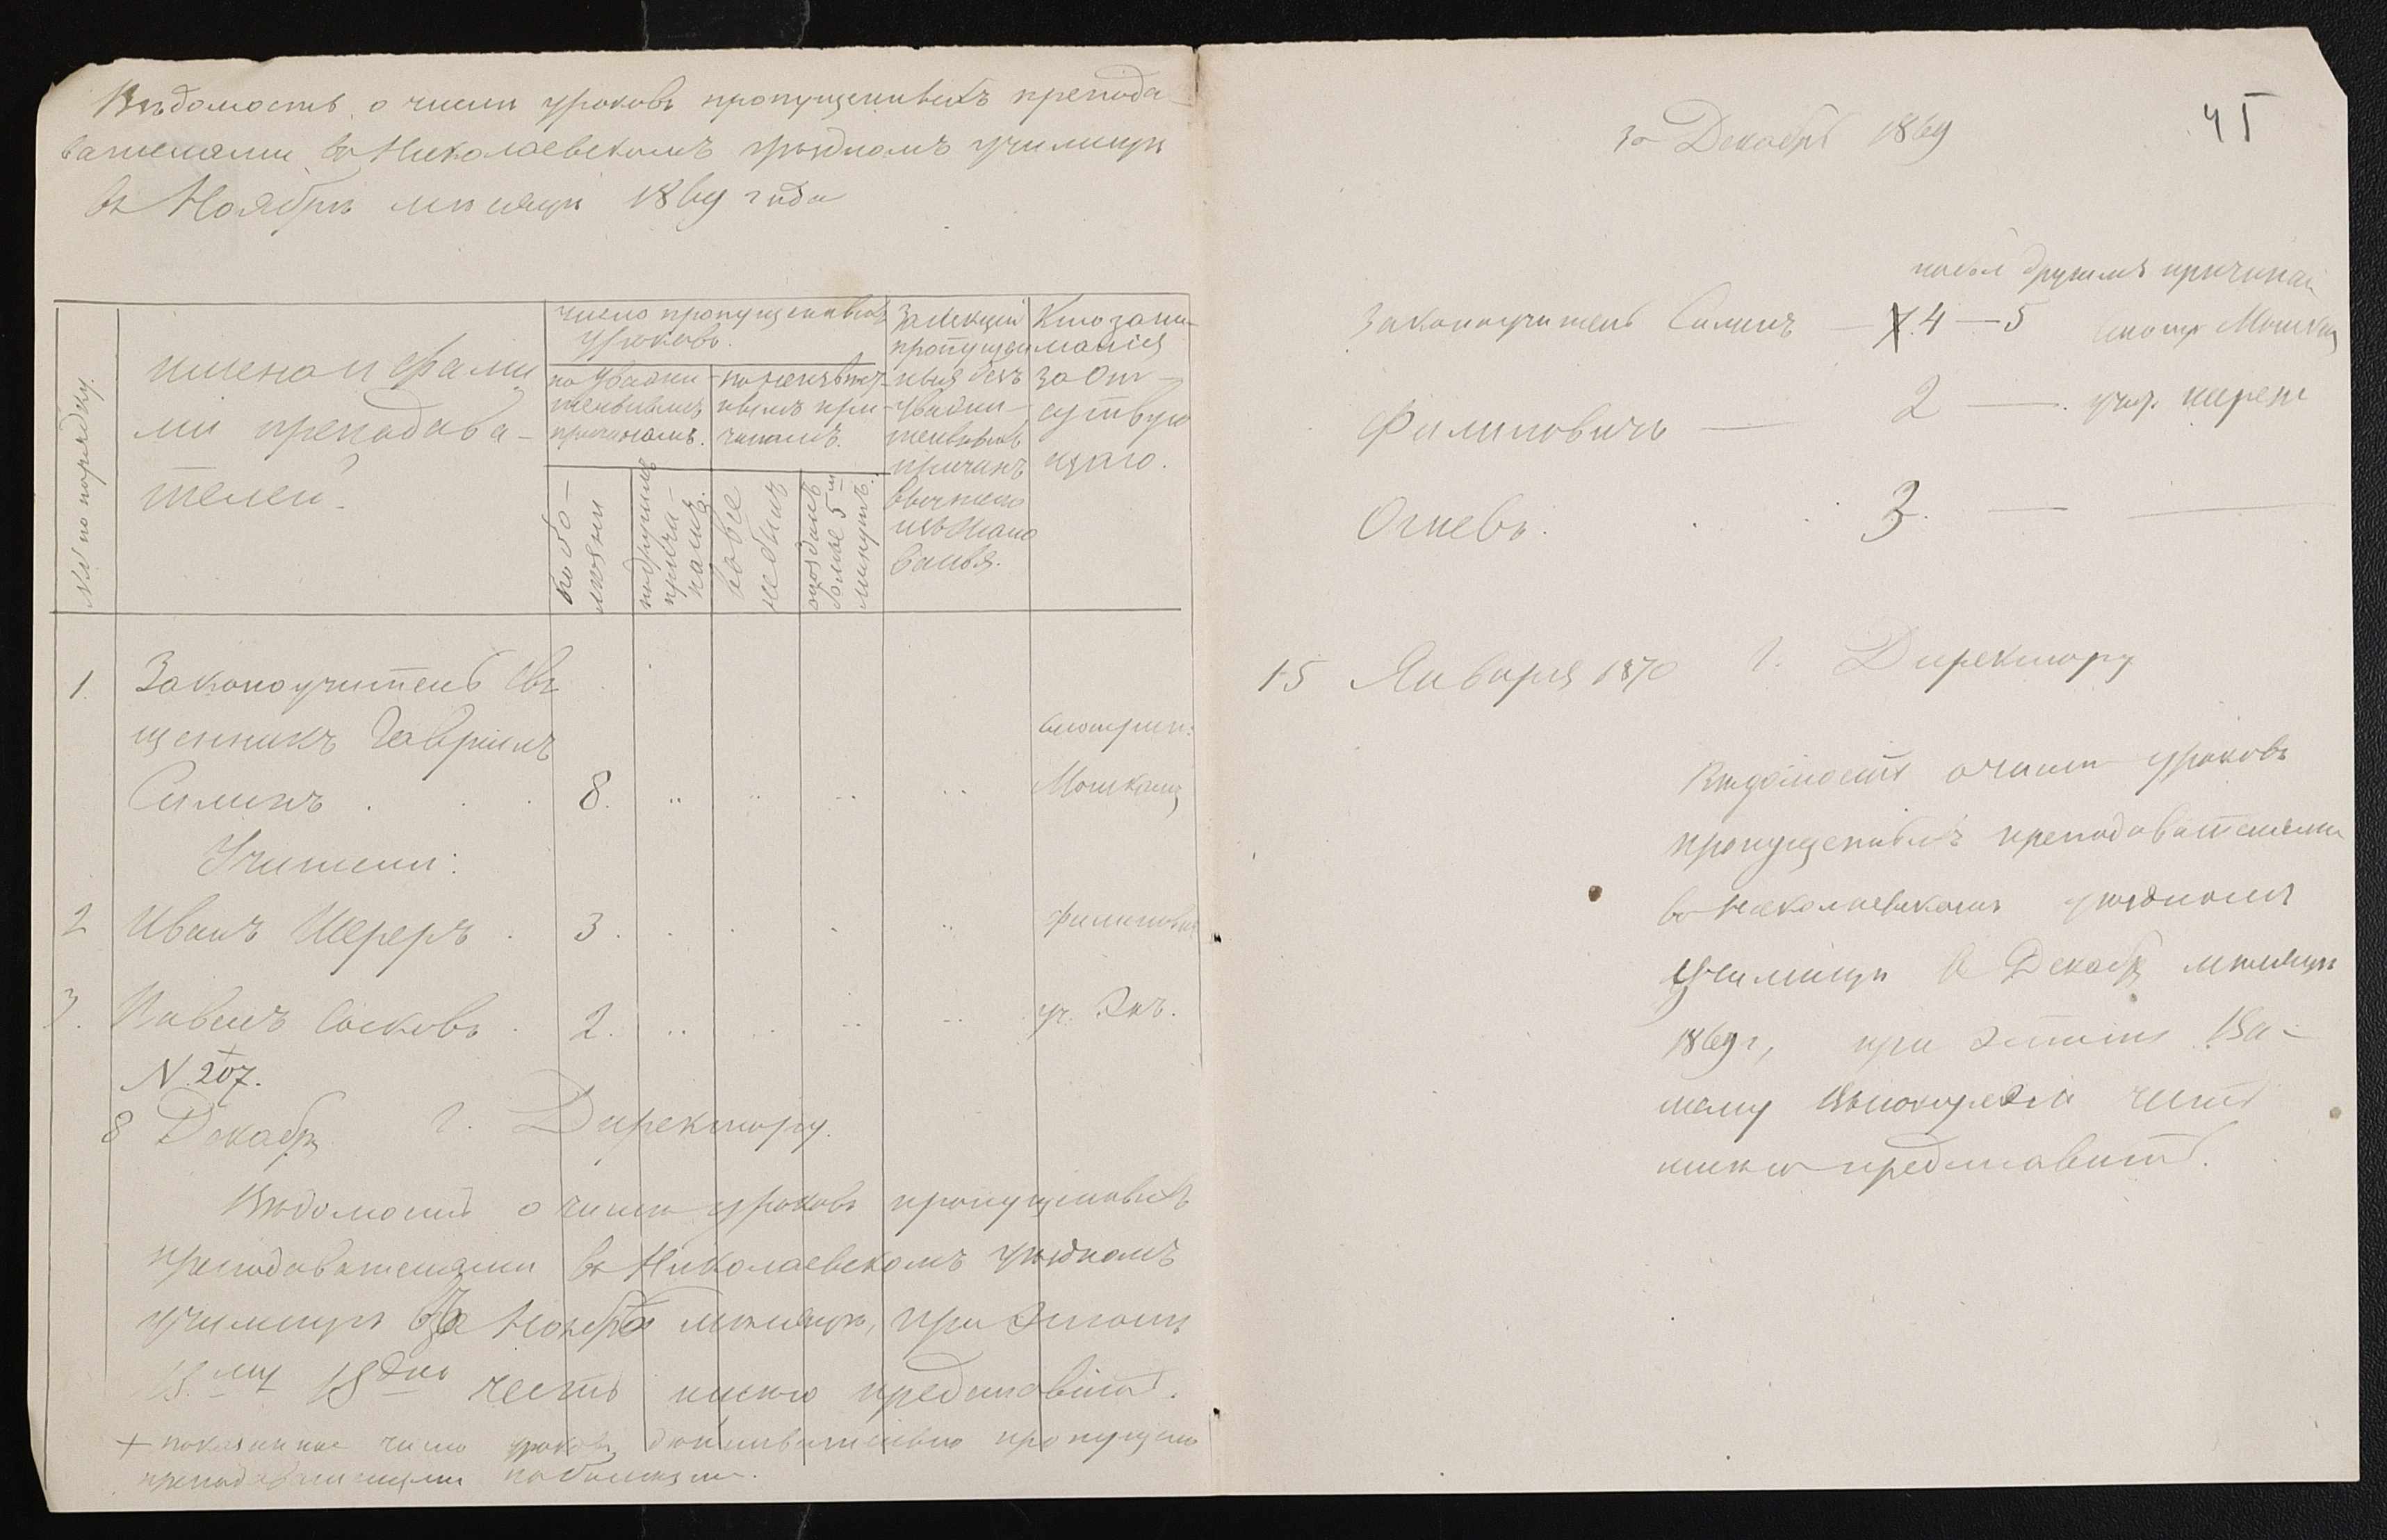 Вѣдомость о числѣ уроковъ пропущенныхъ препода-
вателями въ Николаевскомъ уѣздномъ училищѣ
въ Ноябрѣ мѣсяцѣ 1869 года
№№ по порядку.
имена и фами
лiи преподава-
телей.
число пропущенныхъ
уроковъ.
по уважи-
тельнымъ
причинамъ.
по неизвѣст-
нымъ при-
чинамъ.
по бо-
лѣзни
по другимъ
причи-
намъ.
вовсе
не былъ
опоздалъ
болѣе 5 ти
минутъ.
За лекцiи
пропущен
ныя безъ
уважи-
тельныхъ
причинъ
вычтено
изъ жало
ванья.
Кто зани
мался
за от-
сутствую
щаго.
1. Законоучитель свя
щенникъ Гаврiилъ
смотрит:
Силинъ . . . 8. Мошкалц
Учители:
2 Иванъ Шереръ . 3. Филиповичъ
3. Павелъ Сосковъ . 2. уч.
N. 207.
8 Декабря Г. Директору.
Вѣдомость о числѣ уроковъ пропущенныхъ
преподавателями въ Николаевскомъ уѣздномъ
училищѣ въ Ноябрѣ мѣсяцѣ, при этомъ
В. му В дiю честь имѣю представить.
+ показанное число уроковъ дѣйствительно пропущено
преподавателями по болѣзни.
41
за Декабрь 1869
по другимъ причинам
Законоучитель Силинъ — 4 — 5 смотр Мошкалц
Филиповичъ — 2 — уч. Шерер
Огневъ. 3. — —
15 Января 1870 Г. Директору
Вѣдомость о числѣ уроковъ
пропущенныхъ преподавателями
въ Николаевскомъ уѣздномъ
училищѣ въ Декабрѣ мѣсяцѣ
1869 г, при этомъ Ва-
шему Высокородiю честь
имѣю представить.